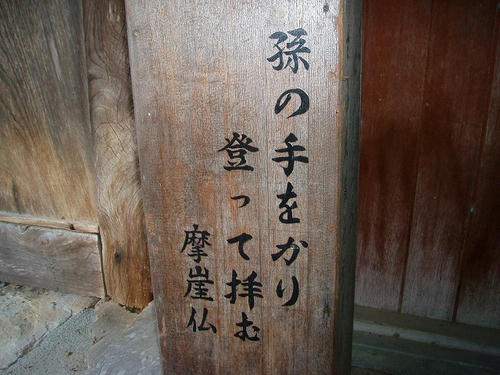 孫の手をかり
登って拝む
摩崖仏